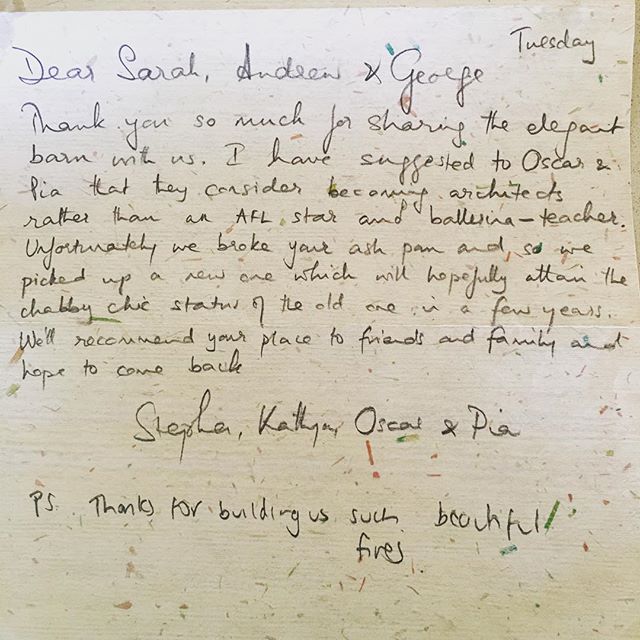 Tuesday
Dear Sarah, Andrew & George
Thank you so much for sharing the elegant
barn with us. I have suggested to Oscar &
Pia that they consider becoming architects
rather than an AFL star and ballerina-teacher.
Unfortunately we broke your ash pan and, so we
picked up a new one which will hopefully attain the
chabby chic status of the old one in a few years.
We'll recommend your place to friends and family and
hope to come back
Oscar & Pia
PS. Thanks for building us such beautiful
fires.